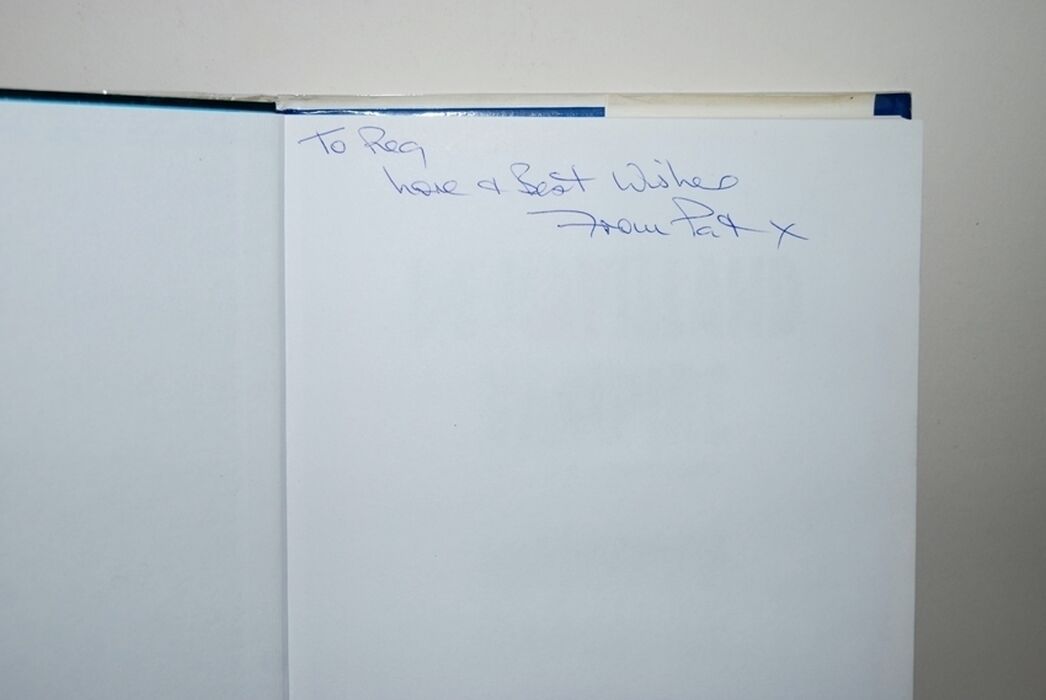 To Reg
Love & Best Wishes
From Pat x